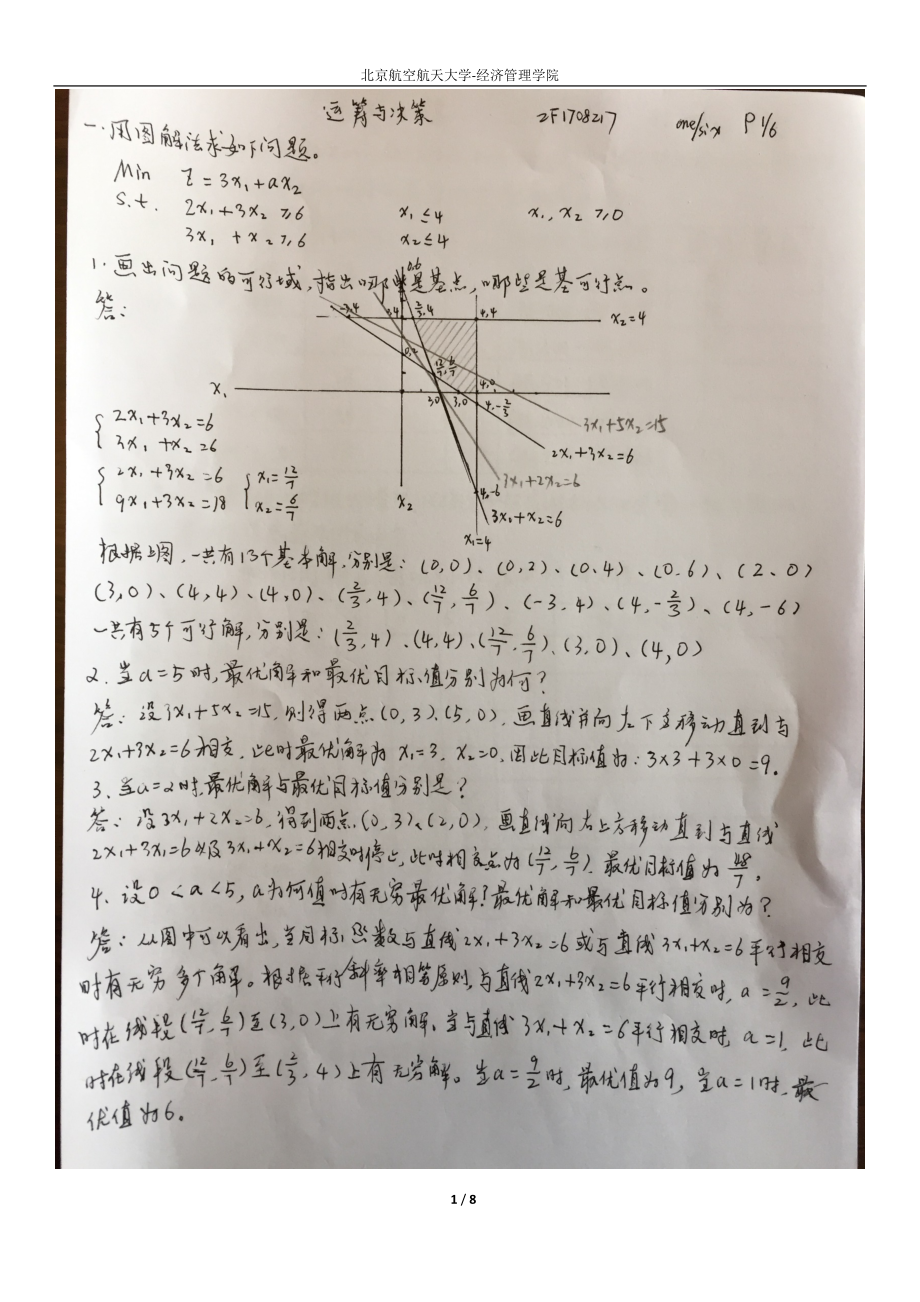 北京航空航天大学-经济管理学院
运筹与决策 ZF1708217 one/six P 1/6
一.用图解法求如下问题。
Min Z = 3x₁+ax₂
s.t. 2x₁+3x₂ ≥6 x₁ ≤4 x₁、x₂ ≥0
3x₁ +x₂≥6 x₂≤4
1.画出问题的可行域,指出哪些是基点,哪些是基可行点。
答:
0,6
-3,4 3,4 2/3,4 4,4 x₂=4
0,2 12/7,6/7
x₁ 30 3,0 4,0
4,-2/3
3x₁+5x₂=15
2x₁+3x₂=6
3x₁+2x₂=6
4,-6
3x₁+x₂=6
x₂
x₁=4
{2x₁+3x₂=6
3x₁+x₂=6
{2x₁+3x₂=6 {x₁=12/7
9x₁+3x₂=18 x₂=6/7
根据上图,一共有13个基本解,分别是:(0,0)、(0,2)、(0,4)、(0,6)、(2、0)
(3,0)、(4,4)、(4,0)、(2/3,4)、(12/7,6/7)、(-3,4)、(4,-2/3)、(4,-6)
一共有5个可行解,分别是:(2/3,4)、(4,4)、(12/7,6/7)、(3,0)、(4,0)
2.当a=5时,最优解和最优目标值分别为何?
答:设3x₁+5x₂=15,则得两点(0,3)、(5,0),画直线并向左下方移动直到与
2x₁+3x₂=6相交,此时最优解为 x₁=3,x₂=0,因此目标值为:3×3+3×0=9.
3、当a=2时,最优解与最优目标值分别是?
答:设3x₁+2x₂=6,得到两点(0,3)、(2,0),画直线向右上方移动直到与直线
2x₁+3x₁=6以及3x₁+x₂=6相交时停止,此时相交点为(12/7,6/7).最优目标值为48/7。
4、设0<a<5,a为何值时有无穷最优解?最优解和最优目标值分别为?
答:从图中可以看出,当目标函数与直线2x₁+3x₂=6或与直线3x₁+x₂=6平行相交
时有无穷多个解。根据平行斜率相等原则,与直线2x₁+3x₂=6平行相交时,a=9/2,此
时在线段(12/7,6/7)至(3,0)上有无穷解、当与直线3x₁+x₂=6平行相交时,a=1,此
时在线段(12/7,6/7)至(2/3,4)上有无穷解。当a=9/2时,最优值为9,当a=1时,最
优值为6。
1 / 8